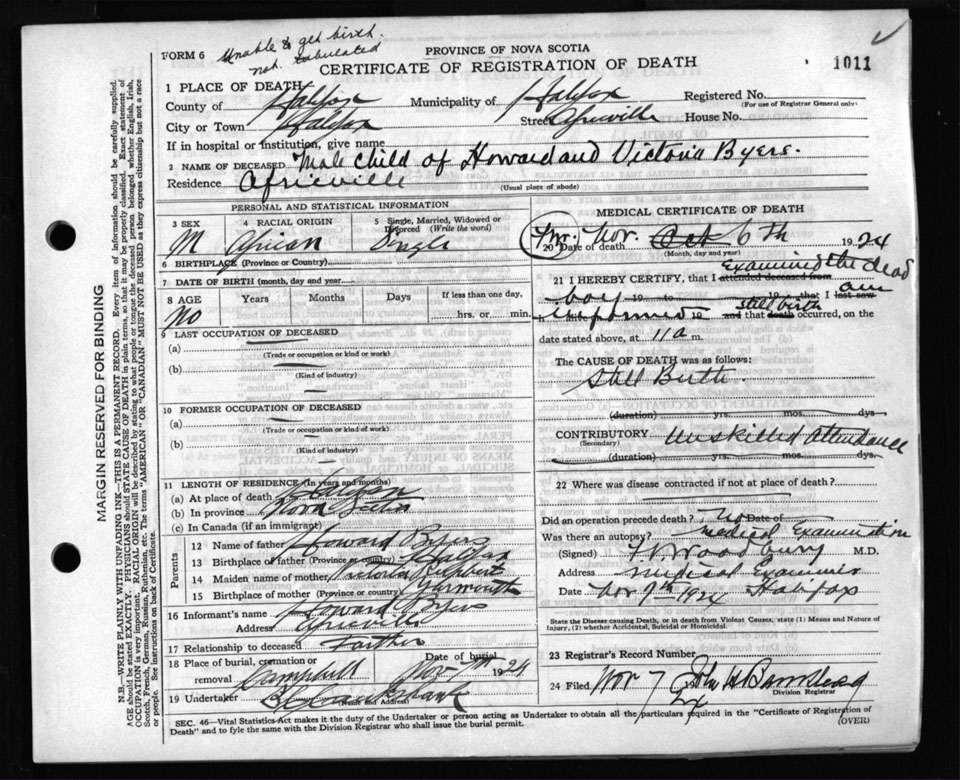 FORM 6 Unable to get birth.
not tabulated
PROVINCE OF NOVA SCOTIA
CERTIFICATE OF REGISTRATION OF DEATH
1011
1 PLACE OF DEATH
County of Halifax Municipality of Halifax Registered No.
(For use of Registrar General only)
City or Town Halifax Street Africville House No.
If in hospital or institution, give name
2 NAME OF DECEASED Male Child of Howard and Victoria Byers.
Residence Africville
(Usual place of abode)
PERSONAL AND STATISTICAL INFORMATION
3 SEX 4 RACIAL ORIGIN 5 Single, Married, Widowed or Divorced (Write the word)
M African Single
6 BIRTHPLACE (Province or Country)
7 DATE OF BIRTH (month, day and year)
8 AGE Years Months Days If less than one day,
No hrs. or min.
9 LAST OCCUPATION OF DECEASED
(a)
(Trade or occupation or kind or work)
(b)
(Kind of industry)
10 FORMER OCCUPATION OF DECEASED
(a)
(Trade or occupation or kind of work)
(b)
(Kind of industry)
11 LENGTH OF RESIDENCE (In years and months)
(a) At place of death
(b) In province Nova Scotia
(c) In Canada (if an immigrant)
Parents
12 Name of father Howard Byers
13 Birthplace of father (Province or country) Halifax
14 Maiden name of mother Victoria
15 Birthplace of mother (Province or country) Yarmouth
16 Informant's name Howard Byers
Address Africville
17 Relationship to deceased Father
18 Place of burial, cremation or removal Date of burial
Campbell Nov 7th 1924
19 Undertaker Cruikshank
(Name and Address)
MEDICAL CERTIFICATE OF DEATH
20 Date of death Nov. Oct 6th 1924
(Month, day and year)
21 I HEREBY CERTIFY, that I attended deceased from Examined the dead
boy 19 to 19 that I last saw
alive 19 and that death occurred, on the still birth
date stated above, at 11 a m.
The CAUSE OF DEATH was as follows:
Still Birth.
(duration) yrs. mos. dys.
CONTRIBUTORY Unskilled Attendance
(Secondary)
(duration) yrs. mos. dys.
22 Where was disease contracted if not at place of death?
Did an operation precede death? No Date of
Was there an autopsy? Medical Examination
(Signed) Woodbury M.D.
Address Medical Examiner
Date Nov 7th 1924 Halifax
State the Disease causing Death, or in death from Violent Causes, state (1) Means and Nature of Injury, (2) whether Accidental, Suicidal or Homicidal.
23 Registrar's Record Number
24 Filed Nov 7 John H
Division Registrar
SEC. 46—Vital Statistics Act makes it the duty of the Undertaker or person acting as Undertaker to obtain all the particulars required in the "Certificate of Registration of
Death" and to fyle the same with the Division Registrar who shall issue the burial permit.
(OVER)
MARGIN RESERVED FOR BINDING
N.B.—WRITE PLAINLY WITH UNFADING INK—THIS IS A PERMANENT RECORD. Every item of information should be carefully supplied.
AGE should be stated EXACTLY. PHYSICIANS should STATE CAUSE OF DEATH in plain terms, so that it may be properly classified. Exact statement of
OCCUPATION is very important. RACIAL ORIGIN will be described by stating to what people or tongue the deceased person belonged whether English, Irish,
Scotch, French, German, Russian, Ruthenian, etc. The terms "AMERICAN" OR "CANADIAN" MUST NOT BE USED as they express citizenship but not a race
or people. See instructions on back of Certificate.